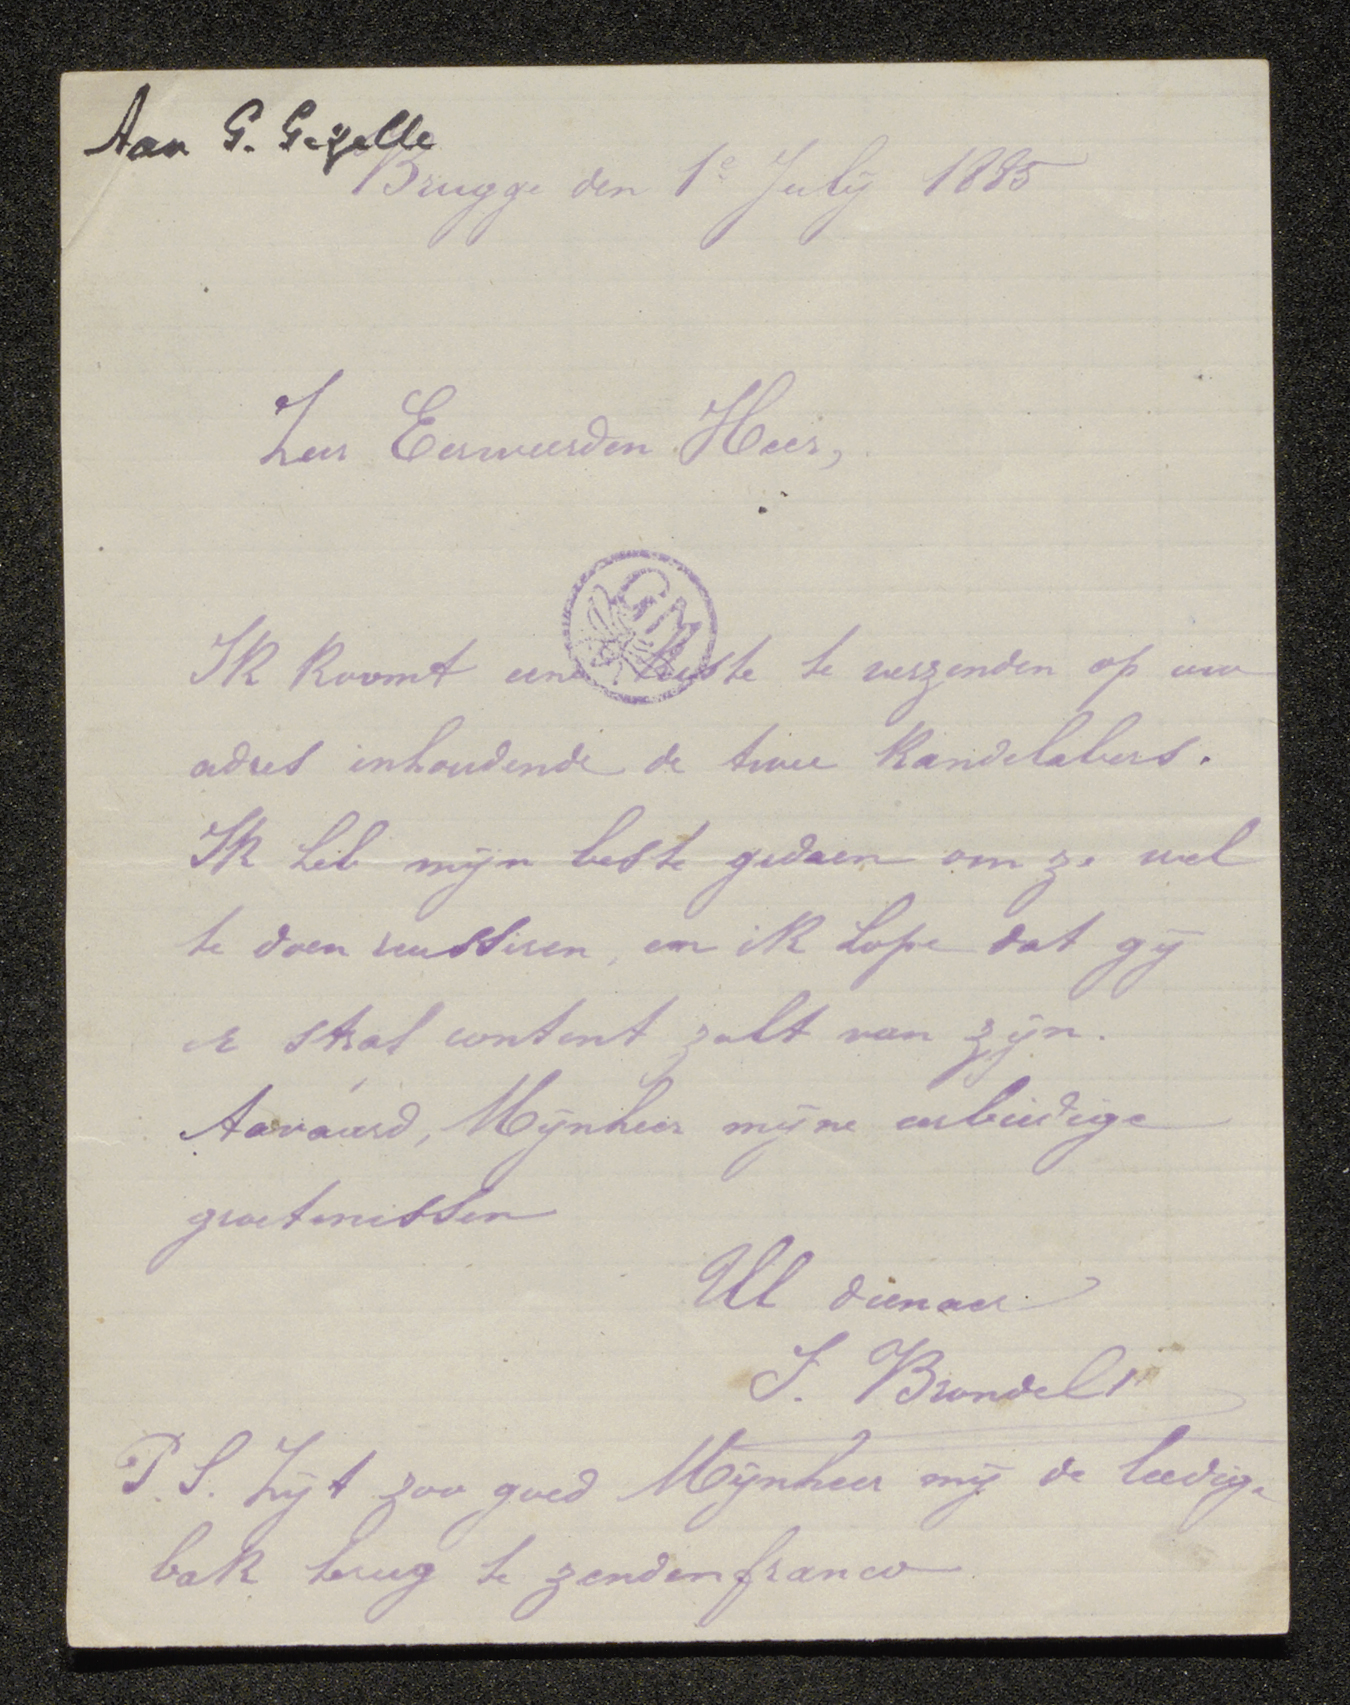 Aan G. Gezelle
Brugge den 1e July 1885
Zeer Eerweerden Heer,
GM
Ik koomt eene kuste te verzenden op uw
adres inhoudende de twee Kandelabers.
Ik heb myn beste gedaen om ze wel
te doen reussiren, en ik hope dat gy
er straf content zult van zyn.
Aavaerd, Mynheer myne eerbiedige
groetenissen
Ul dienaer
J. Brondel
P.S. Zyt zoo goed Mynheer my de leedige
bak terug te zenden franco